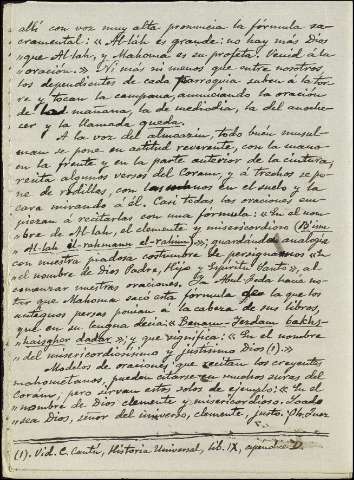 allí con voz muy alta pronuncia la fórmula sa-
cramental: « Al-lah es grande: no hay más Dios
»que Al-lah, y Mahoma es su profeta. Venid á la
»oración.» Ni más ni menos que entre nosotros
los dependientes de cada parroquia suben a la tor-
re y tocan la campana, anunciando la oración
de la mañana, la de mediodía, la del anoche-
cer y la llamada queda.
A la voz del almuazin, todo buen musul-
man se pone en actitud reverente, con la mano
en la frente y en la parte anterior de la cintura,
recita algunos versos del Coram, y á trechos se po-
ne de rodillas, con las manos en el suelo y la
cara mirando á él. Casi todas las oraciones em-
piezan á recitarlas con una formula: « En el nom-
bre de Al-lah, el clemente y misericordioso (B'ism
Al-lah el-rahmann el-rahim)»; guardando analogía
con nuestra piadosa costumbre de persignarnos «En
»el nombre de Dios Padre, Hijo y Espíritu Santo», al
comenzar nuestras oraciones. Abul Feda hace no-
tar que Mahoma sacó esta formula de la que los
antiguos persas ponían a la cabeza de sus libros,
que en su lengua decía: « Benam-Iezdam bakhs-
khaisgher dadar»; y que significa: « En el nombre
»del misericordiosísimo y justísimo Dios (1).»
Modelos de oraciones que recitan los creyentes
mahometanos, pueden citarse en muchos suras del
Coram, pero sirvan estas solas de ejemplo: « En el
»nombre de Dios clemente y misericordioso. Loado
»sea Dios, señor del universo, clemente, justo. Oh, Juez
(1). Vid. C. Cantú, Historia Universal, lib. IX, apéndice D.